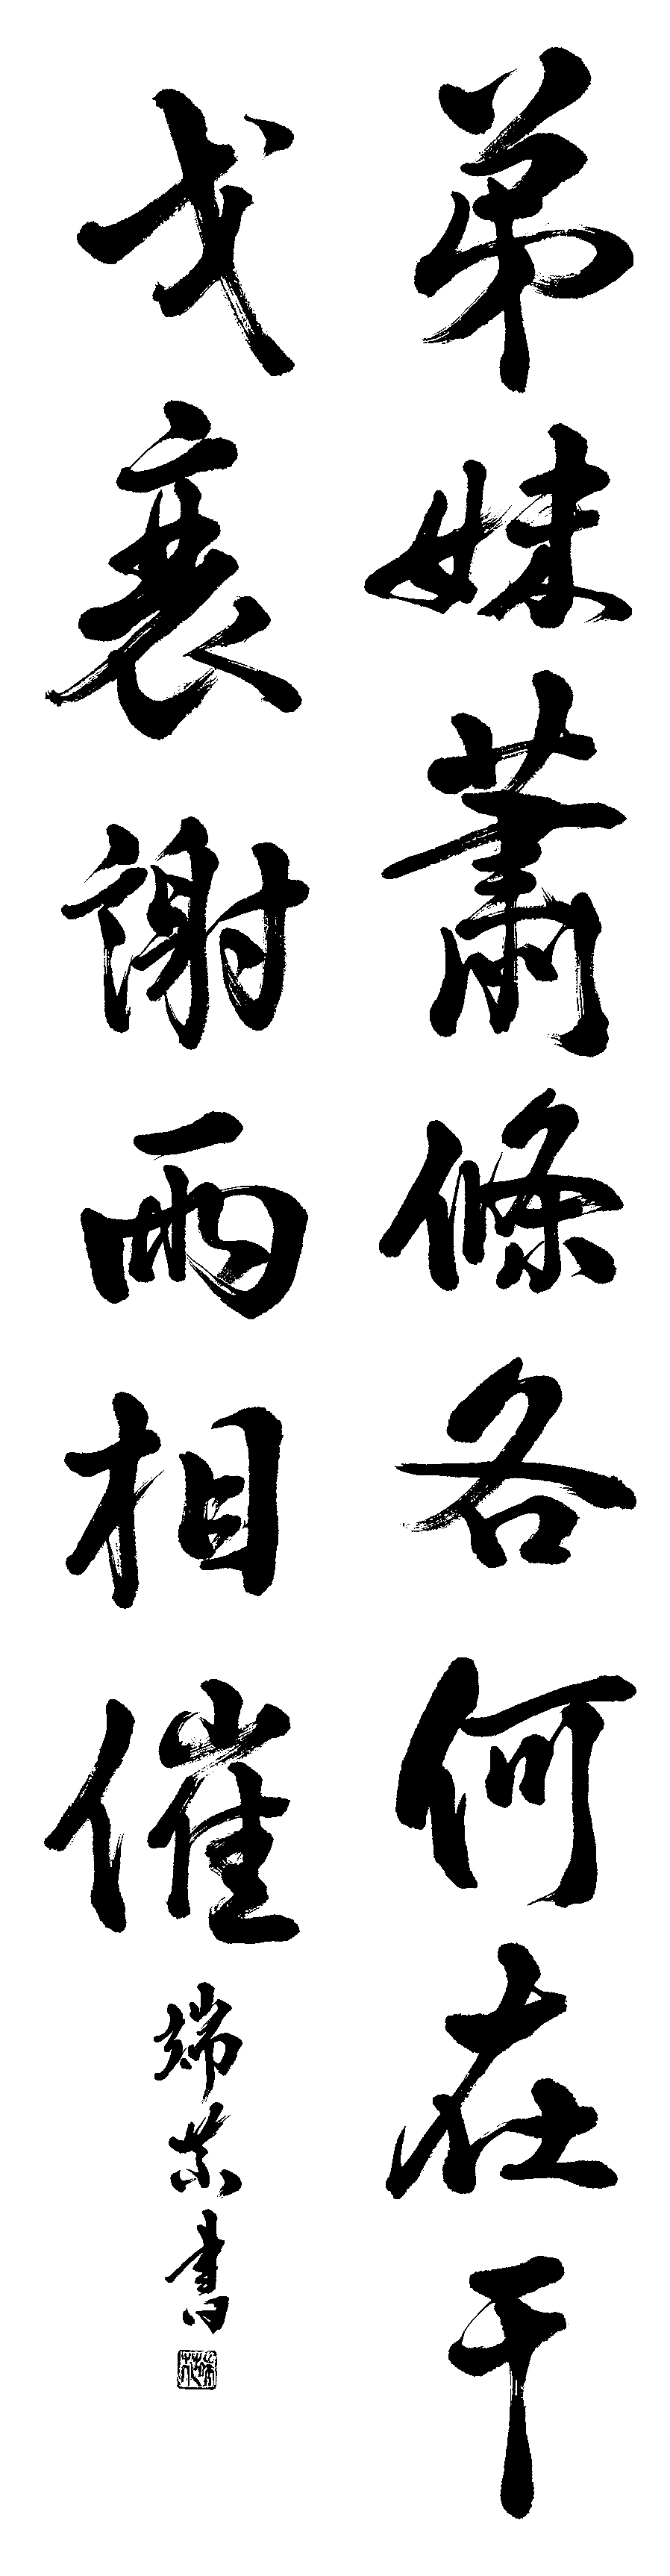 弟妹蕭條各何在干
戈衰謝兩相催
端 書